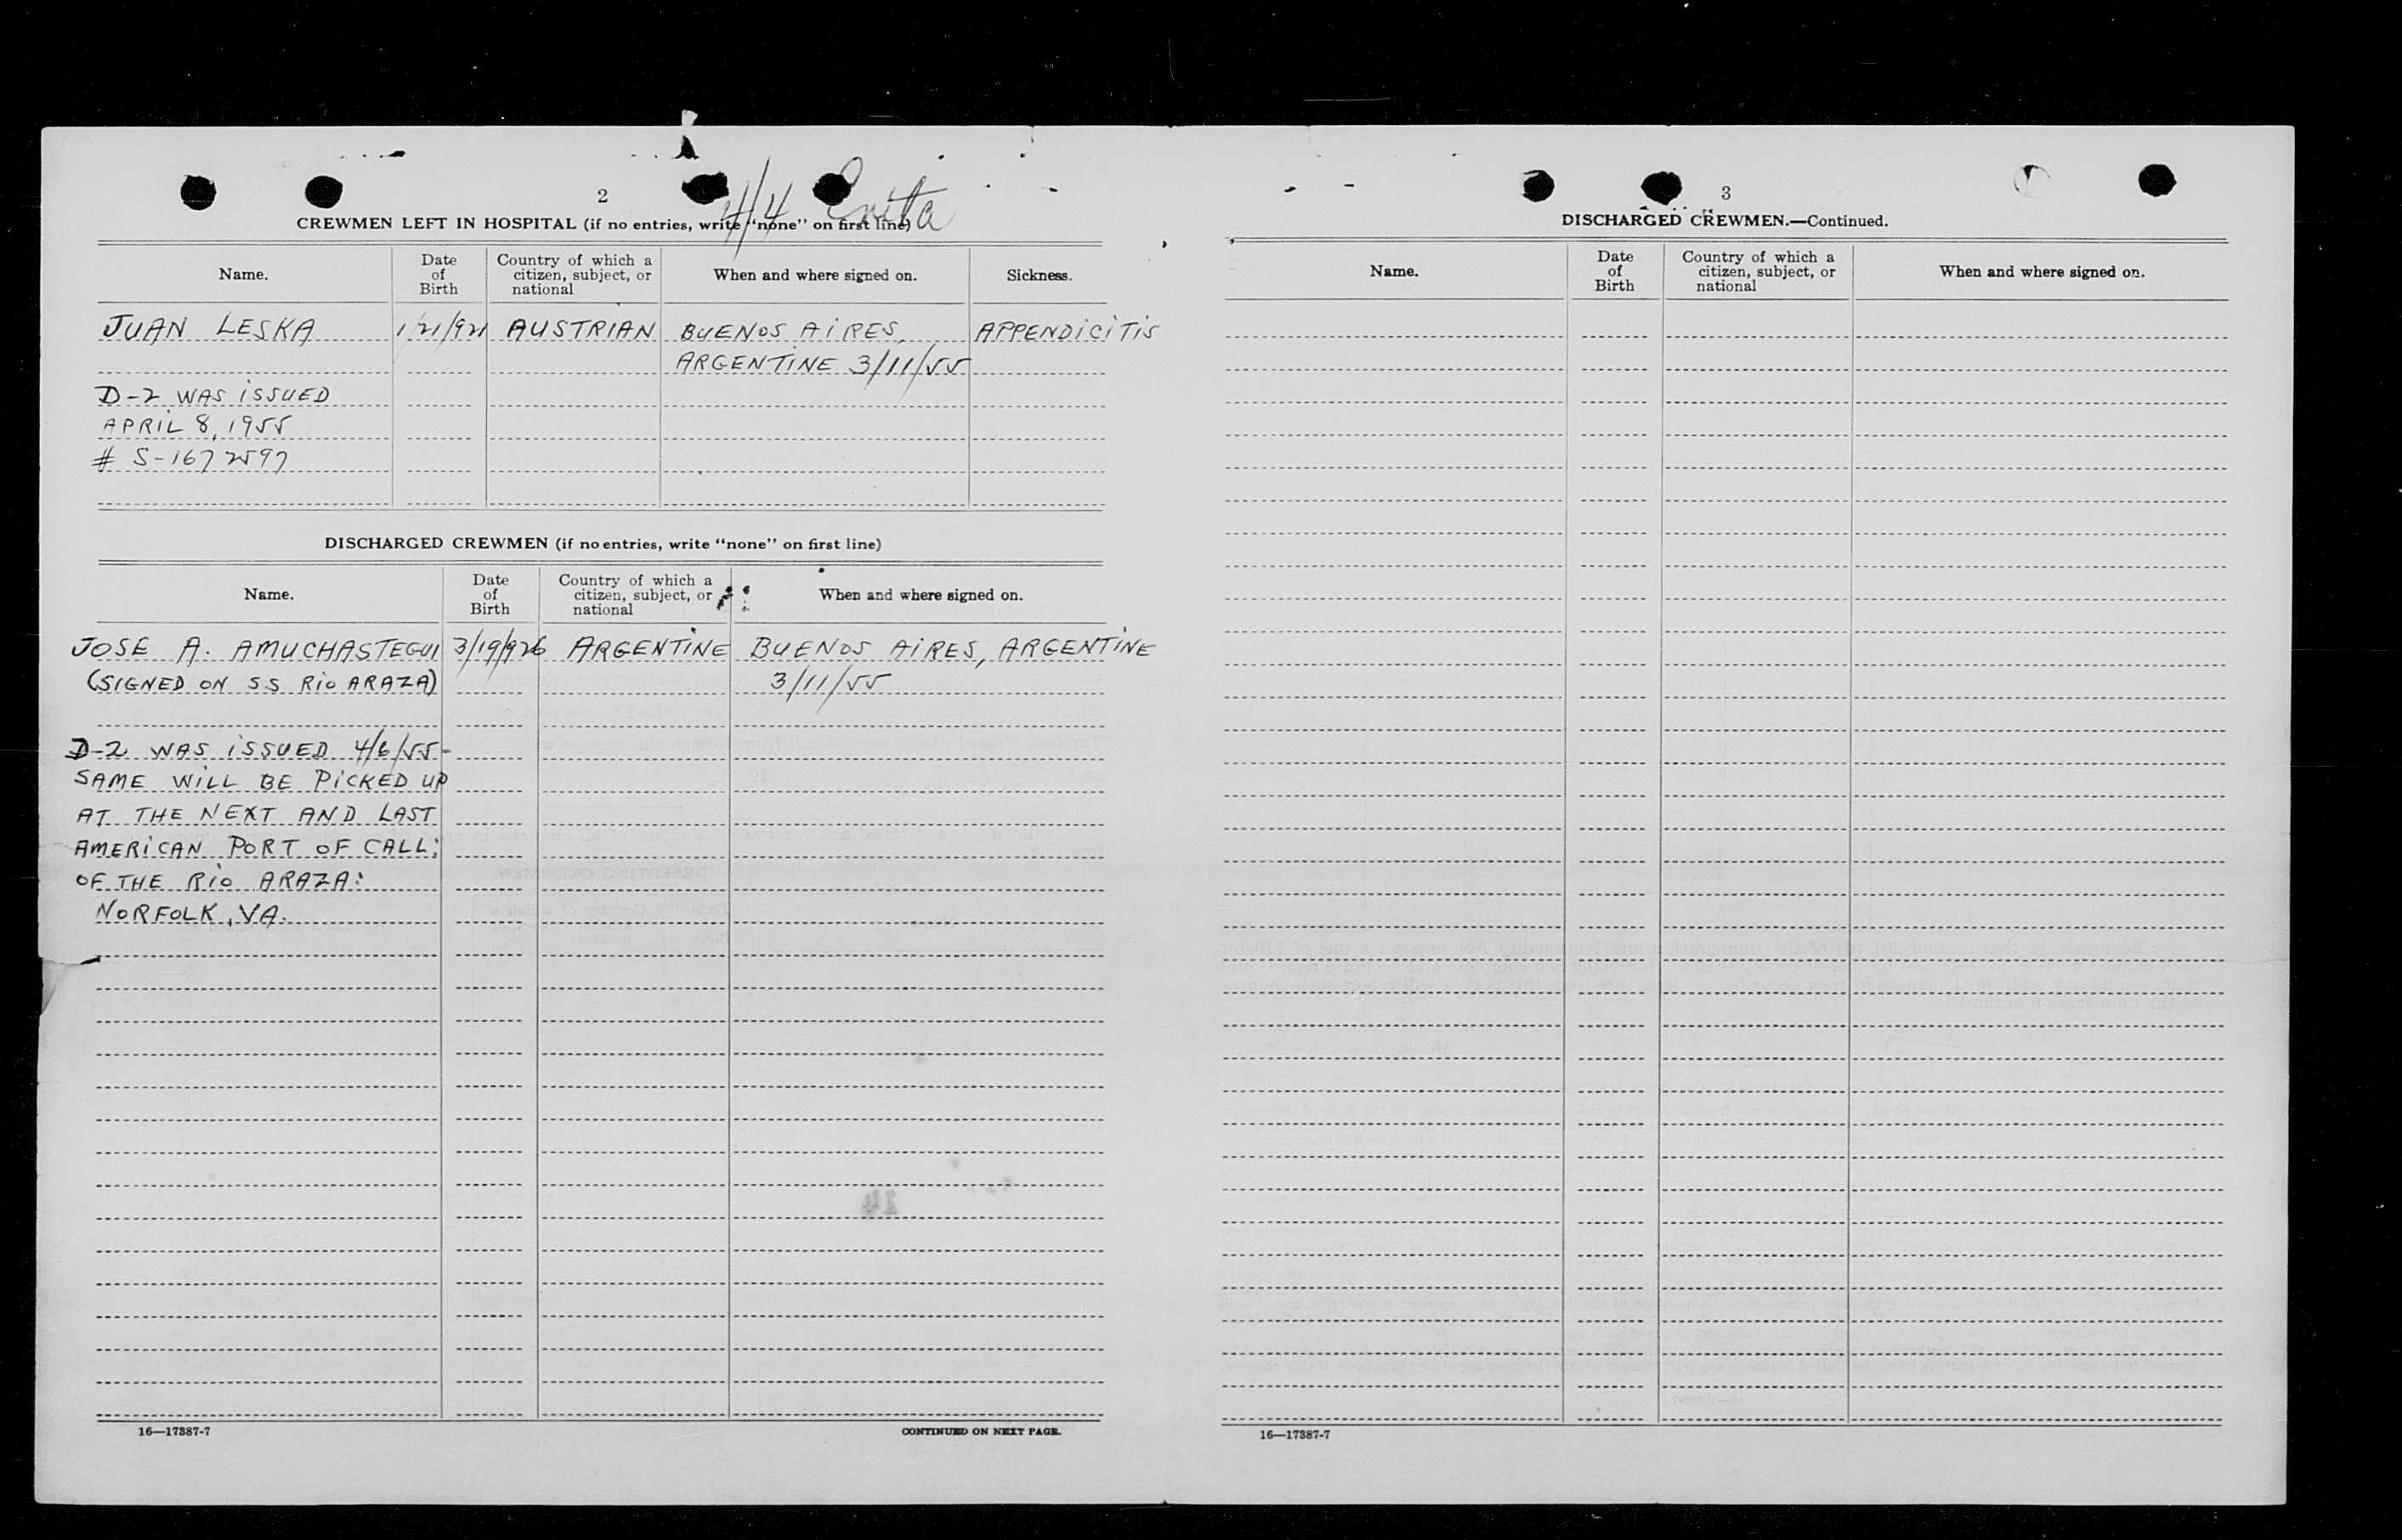 2
4/4 Evita
CREWMEN LEFT IN HOSPITAL (if no entries, write "none" on first line)
Name. Date of Birth Country of which a citizen, subject, or national When and where signed on. Sickness.
JUAN LESKA 1/21/921 AUSTRIAN BUENOS AIRES, APPENDICITIS
ARGENTINE 3/11/55
D-2 WAS ISSUED
APRIL 8, 1955
# S-1672597
DISCHARGED CREWMEN (if no entries, write "none" on first line)
Name. Date of Birth Country of which a citizen, subject, or national When and where signed on.
JOSE A. AMUCHASTEGUI 3/19/926 ARGENTINE BUENOS AIRES, ARGENTINE
(SIGNED ON SS RIO ARAZA) 3/11/55
D-2 WAS ISSUED 4/6/55-
SAME WILL BE PICKED UP
AT THE NEXT AND LAST
AMERICAN PORT OF CALL:
OF THE RIO ARAZA:
NORFOLK, VA.
16—17387-7 CONTINUED ON NEXT PAGE.
3
DISCHARGED CREWMEN.—Continued.
Name. Date of Birth Country of which a citizen, subject, or national When and where signed on.
16—17387-7